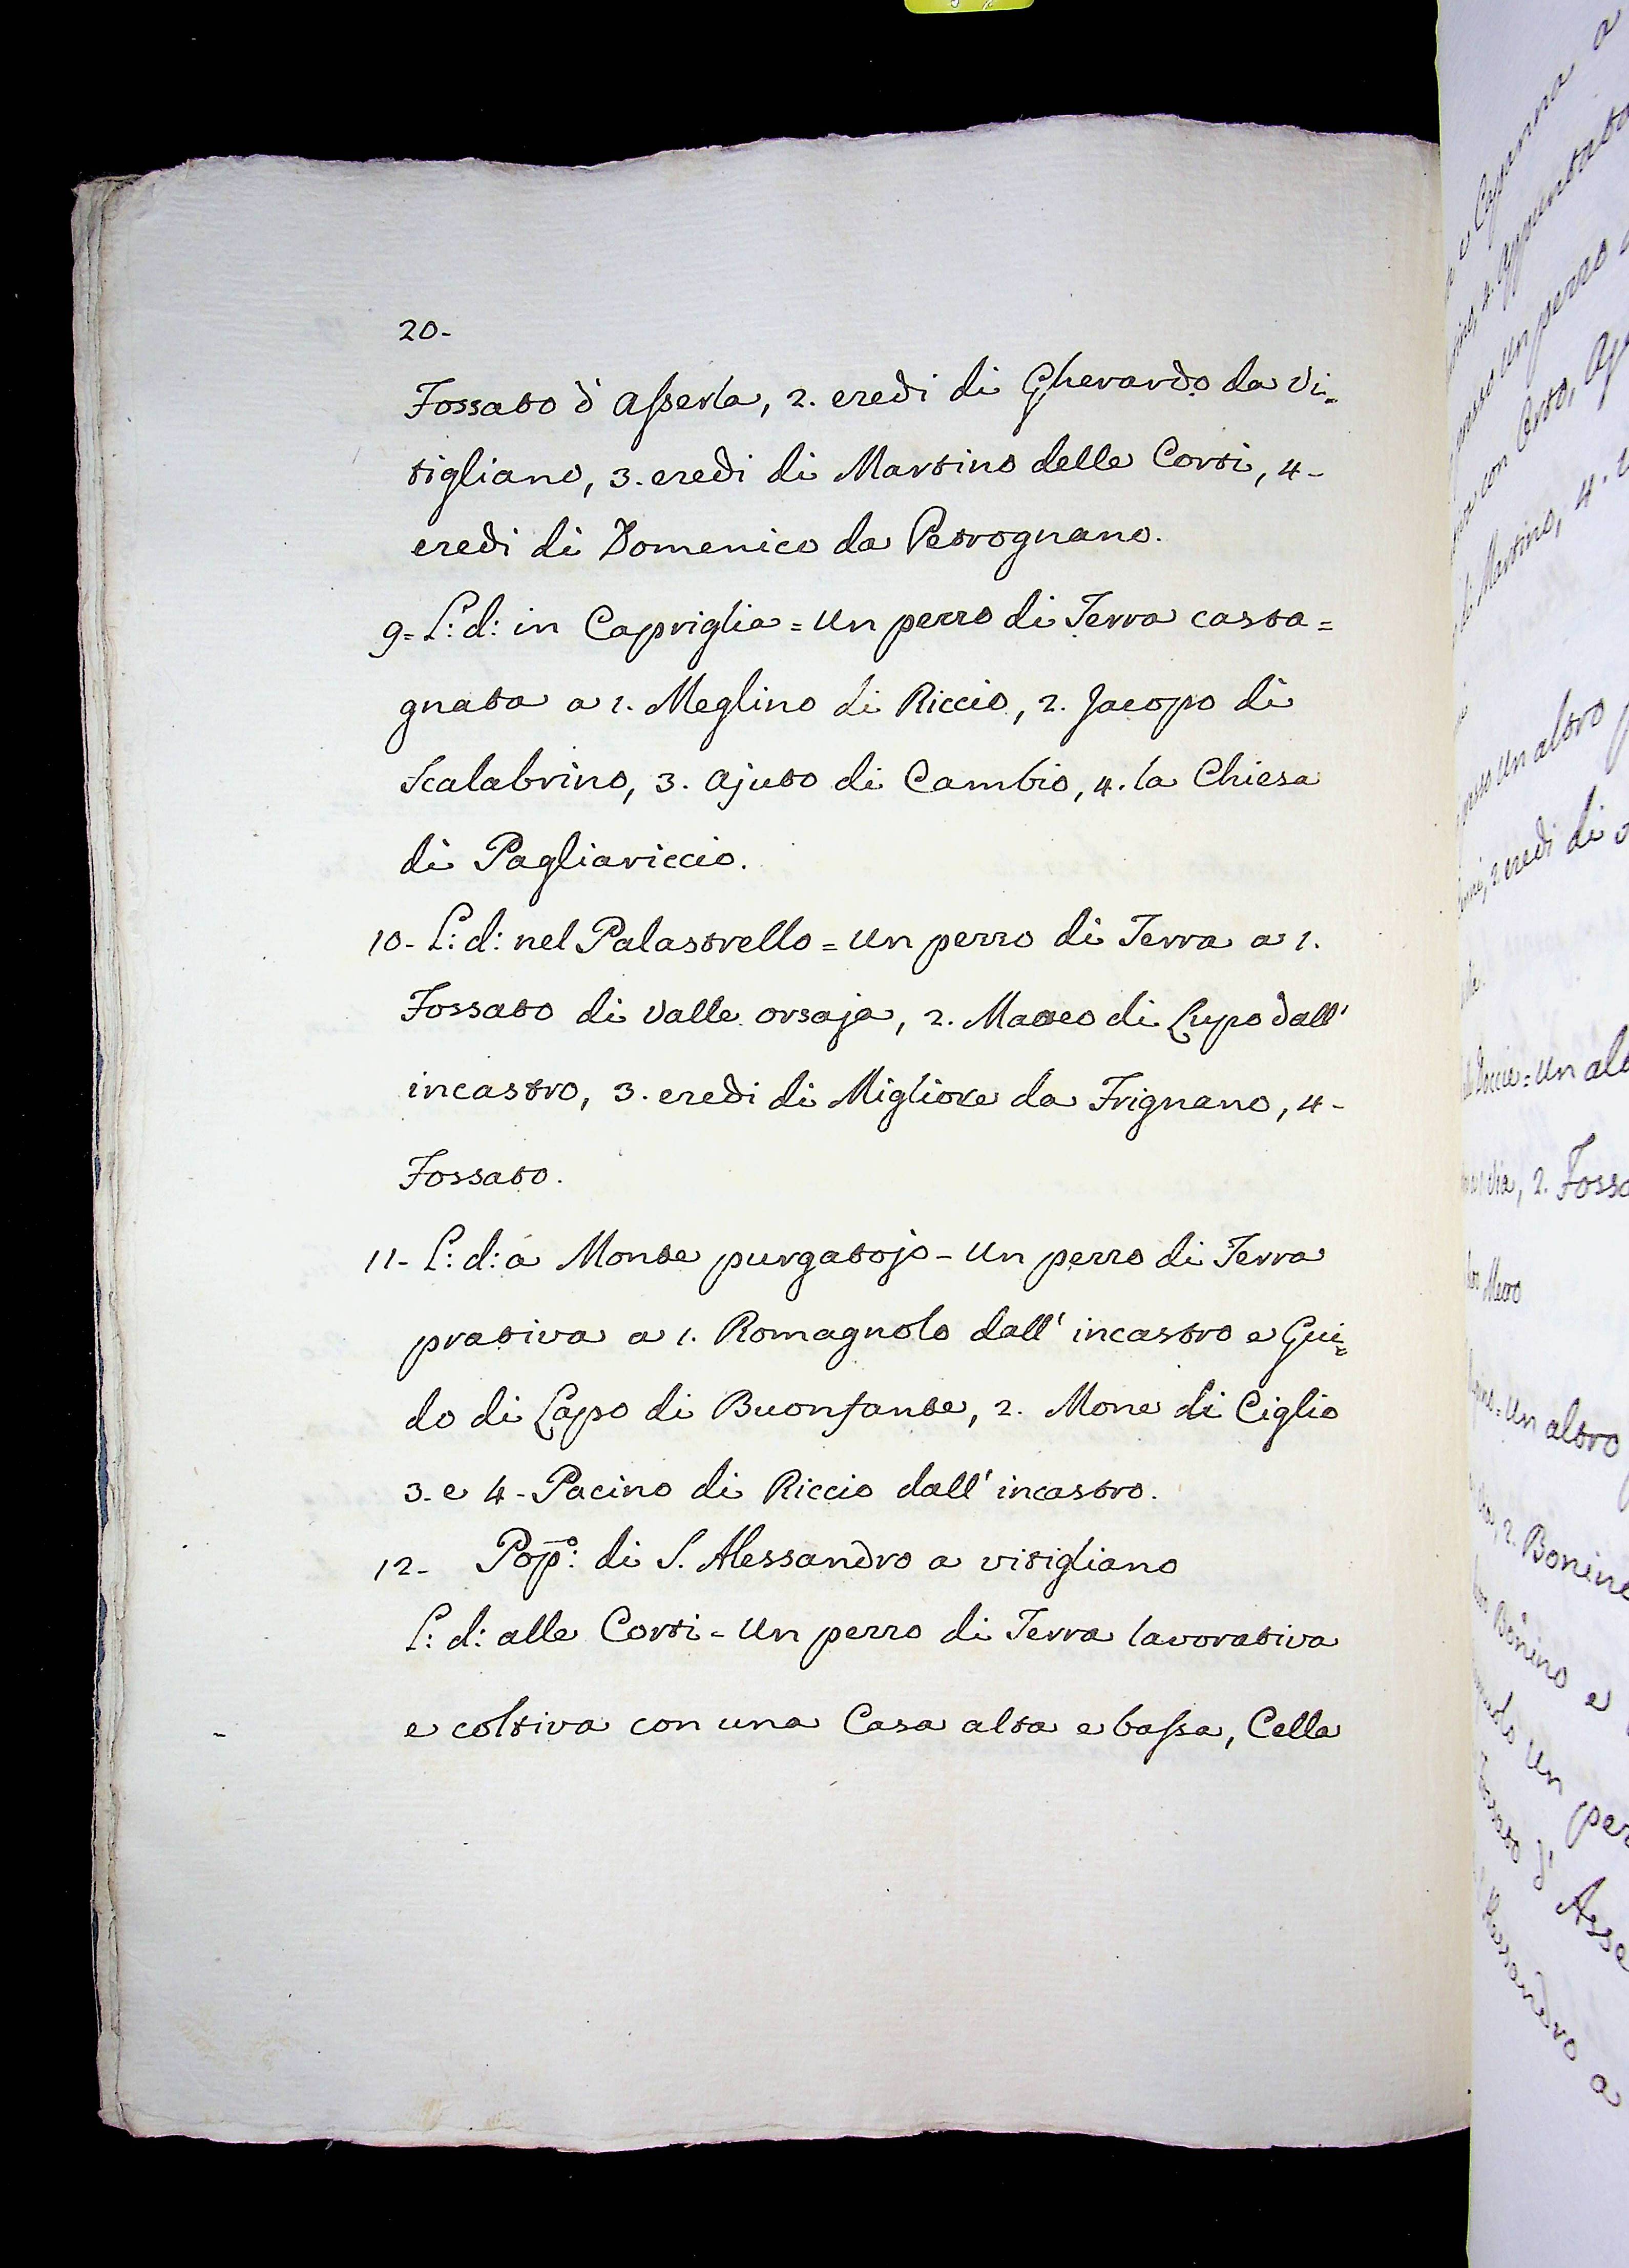 20-
Fossato d'Asserla, 2. eredi di Gherardo da Vi=
tigliano, 3. eredi di Martino delle Corti, 4-
eredi di Domenico da Petrognano.
9= L: d: in Capriglia = Un pezzo di Terra casta=
gnata a 1. Meglino di Riccio, 2. Jacopo di
Scalabrino, 3. Ajuto di Cambio, 4. la Chiesa
di Pagliariccio.
10- L: d: nel Palastrello = Un pezzo di Terra a 1.
Fossato di Valle orsaja, 2. Matteo di Lupo dall'
incastro, 3. eredi di Migliore da Frignano, 4-
Fossato.
11- L: d: a Monte purgatojo - Un pezzo di Terra
prativa a 1. Romagnolo dall' incastro e Gui=
do di Lapo di Buonfante, 2. Mone di Ciglio
3. e 4- Pacino di Riccio dall' incastro.
12- Pop°: di S. Alessandro a vitigliano
L: d: alle Corti = Un pezzo di Terra lavorativa
e coltiva con una Casa alta e bassa, Cella